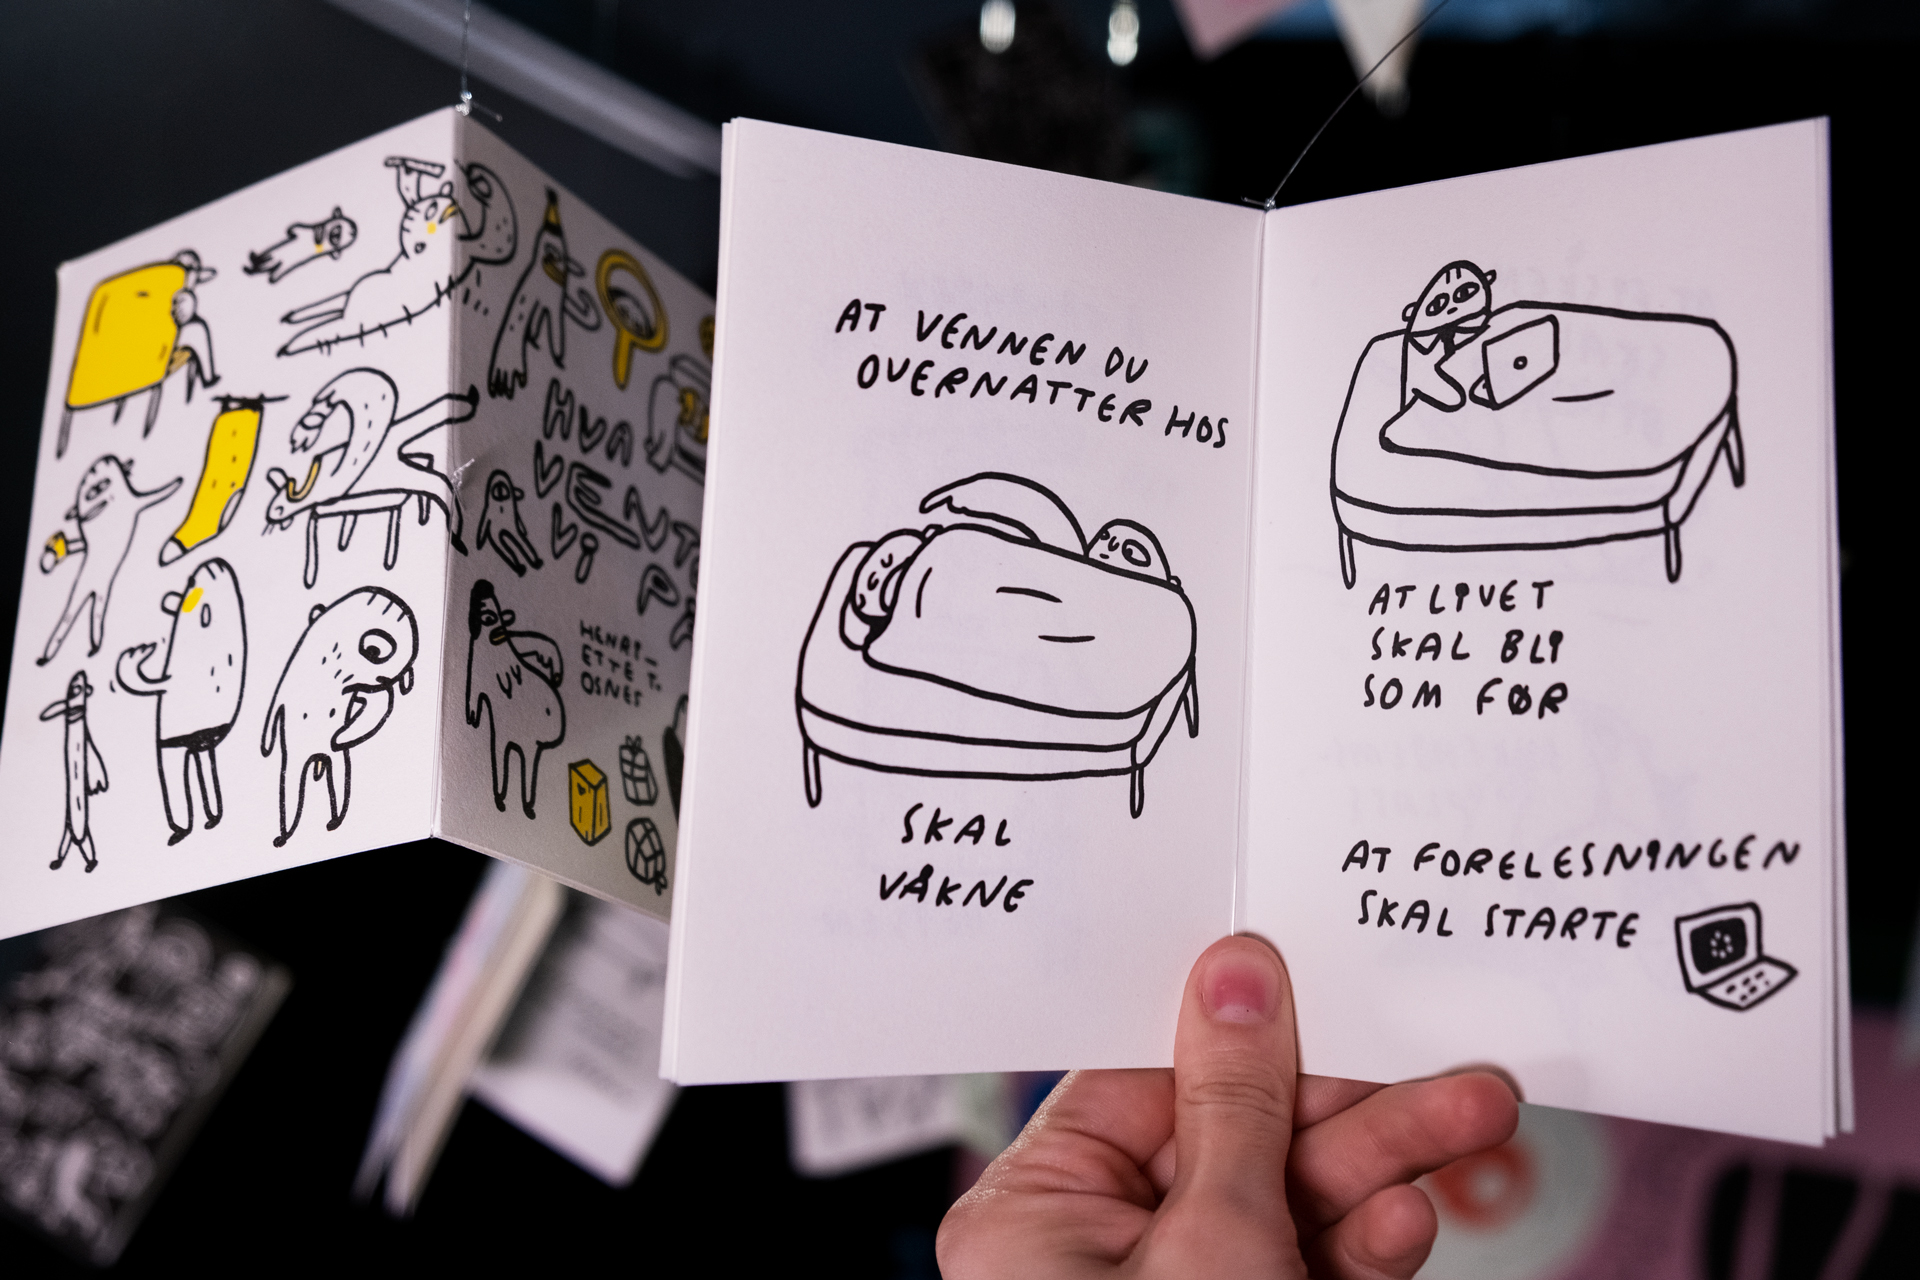 HVA
VENTER
VI
PÅ
HENRI-
ETTE T.
OSNES
AT VENNEN DU
OVERNATTER HOS
SKAL
VÅKNE
AT LIVET
SKAL BLI
SOM FØR
AT FORELESNINGEN
SKAL STARTE